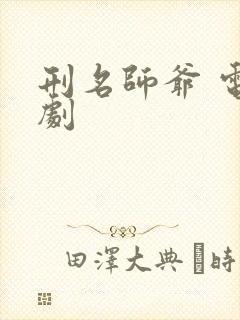 刑名師爺
劇
田澤大典 時